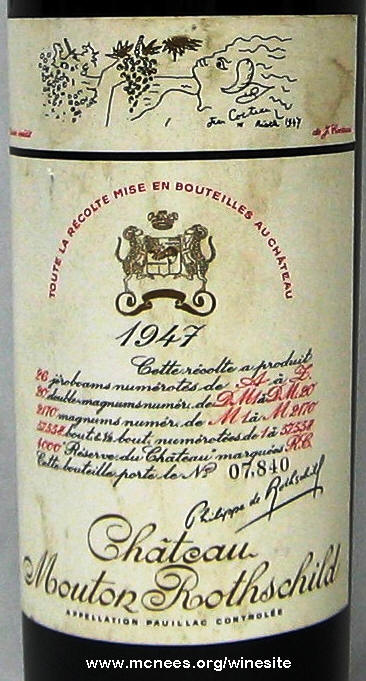 Jean Cocteau
1947
de J. Cocteau
TOUTE LA RÉCOLTE MISE EN BOUTEILLES AU CHÂTEAU
1947
Cette récolte a produit
26 jéroboams numérotés de A à Z
20 double-magnums numér. de D.M.1 à D.M.20
2170 magnums numér. de M1 à M2170
bout. & ½ bout. numérotées de 1 à
4000 "Réserve du Château" marquées R.C.
Cette bouteille porte le No 07,840
Philippe de Rothschild
Château
Mouton Rothschild
APPELLATION PAUILLAC CONTRÔLÉE
www.mcnees.org/winesite